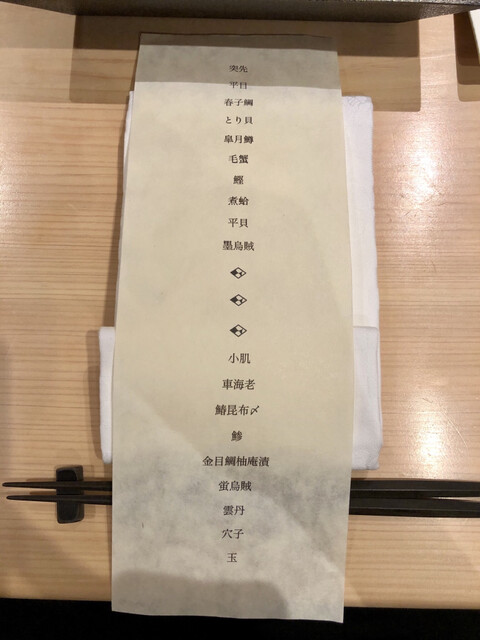 突先
平目
春子鯛
とり貝
皐月鱒
毛蟹
鰹
煮蛤
平貝
墨烏賊
小肌
車海老
鰆昆布〆
鯵
金目鯛柚庵漬
蛍烏賊
雲丹
穴子
玉